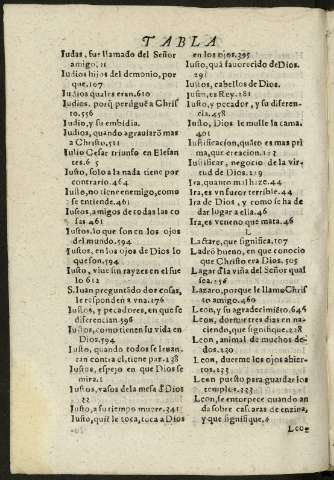 TABLA
Iudas, fue llamado del Señor
amigo.11
Iudios hijos del demonio, por
que.107
Iudios quales eran.610
Iudios. porq̃ perdiguẽ a Chris
to.556
Iudio, y su embidia.
Iudios, quando agrauiarõ mas
a Christo.511
Iulio Cesar triunfo en Elefan
tes.65
Iusto, solo a la nada tiene por
contrario.464
Iusto, no tiene enemigo, como
se entiende.461
Iustos, amigos de todas las co
sas.461
Iustos. lo que son en los ojos
del mundo.594
Iustos, en los ojos de Dios lo
que son.594
Iusto, viue sin rayzes en el sue
lo 612
S. Iuan preguntado dos cosas,
le responden a vna.176
Iustos, y pecadores, en que se
diferencian.596
Iustos, como tienen su vida en
Dios.594
Iusto, quando todos se leuan
tan contra el, tiene paz.138
Iustos, espejo en que Dios se
mira.1
Iustos, vasos de la mesa đ Dios
22
Iusto, a su tiempo muere.241
Iusto, quiẽ le toca, toca a Dios
en los ojos.395
Iusto, quã fauorecido de Dios.
291
Iustos, cabellos de Dios.
Iusto, es Rey.281
Iusto, y pecador, y su diferen-
cia.458
Iusto, Dios le mulle la cama.
401
Iustificacion, quãto es mas pri
ma, que creacion.122
Iustificar, negocio de la vir-
tud de Dios.219
Ira, quanto mal hizo.44
Ira, es vn furor terrible.44
Ira de Dios, y como se ha de
dar lugar a ella.46
Ira, es veneno que mata.46
L
Lactare, que significa.107
Ladrõ bueno, en que conocio
que Christo era Dios.505
Lagar dla viña del Señor qual
sea.256
Lazaro, porque le llamo Chris
to amigo.460
Leon, y su agradecimiẽto.646
Leon, duerme tres dias en na
ciendo, que significa.228
Leon, animal de muchos de-
dos.230
Leon, duerme los ojos abier-
tos.233
Leon puesto para guardar los
templos.233
Leon, se entorpece quando an
da sobre cascaras de enzina,
y que significa.
Leon